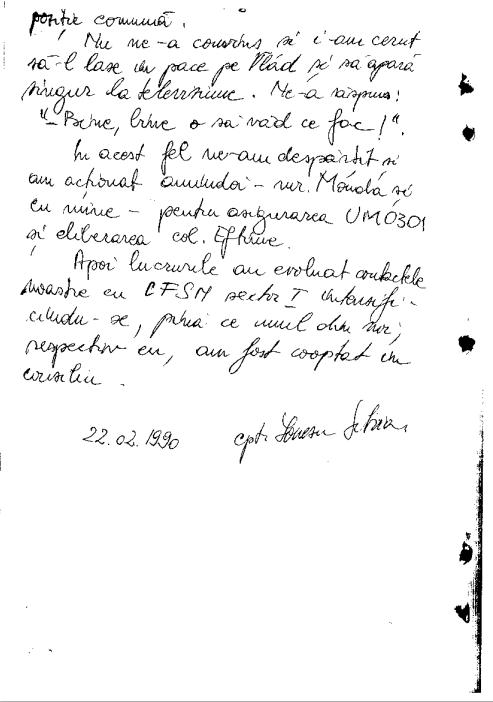 poziție comună.
Nu ne-a convins și i-am cerut
să-l lase în pace pe Vlad și să apară
singur la televiziune. Ne-a răspuns:
"- Bine, bine o să văd ce fac!".
În acest fel ne-am despărțit și
am acționat amîndoi - mr. și
cu mine - pentru asigurarea UM0301
și eliberarea col. Eftime.
Apoi lucrurile au evoluat contactele
noastre cu CFSN sector I intensifi-
cîndu-se, pînă ce unul din noi,
respectiv eu, am fost cooptat în
consiliu.
22.02.1990 cpt. Ionescu